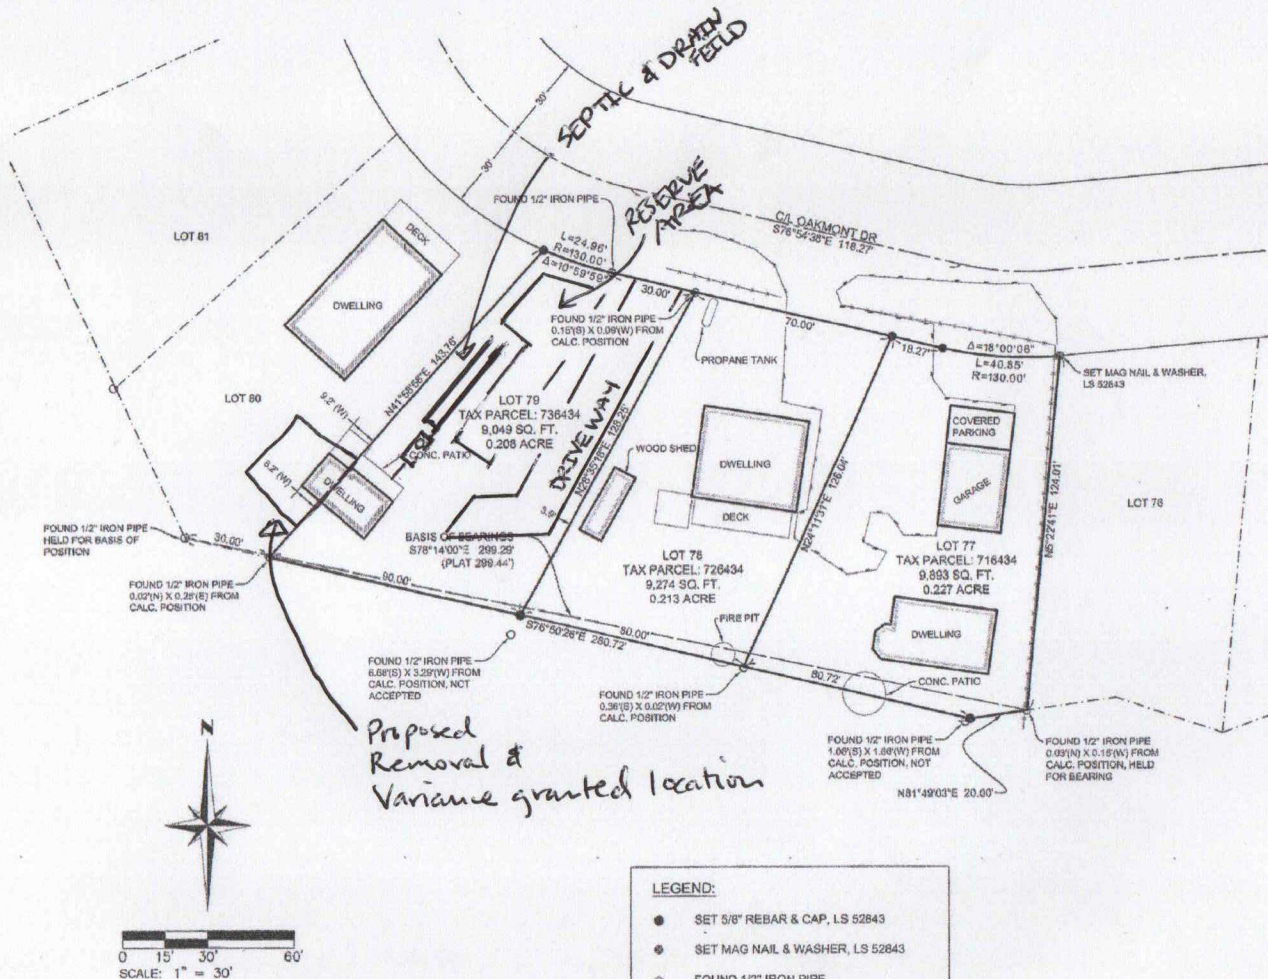 SEPTIC & DRAIN
FEILD
30'
30'
FOUND 1/2" IRON PIPE
RESERVE
AREA
C/L OAKMONT DR
S76°54'38"E 118.27'
LOT 81
DECK
DWELLING
L=24.96'
R=130.00'
Δ=10°59'59"
30.00'
FOUND 1/2" IRON PIPE
0.15'(S) X 0.09'(W) FROM
CALC. POSITION
70.00'
PROPANE TANK
18.27'
Δ=18°00'06"
L=40.85'
R=130.00'
SET MAG NAIL & WASHER,
LS 52843
LOT 80
N41°58'56"E 143.76'
9.2' (W)
LOT 79
TAX PARCEL: 736434
9,049 SQ. FT.
0.208 ACRE
DRIVEWAY
N28°35'18"E 128.25'
CONC. PATIO
8.2' (W)
DWELLING
WOOD SHED
3.9'
DWELLING
DECK
COVERED
PARKING
GARAGE
N24°11'31"E 126.04'
N5°22'41"E 124.01'
LOT 76
FOUND 1/2" IRON PIPE
HELD FOR BASIS OF
POSITION
30.00'
BASIS OF BEARINGS
S78°14'00"E 299.29'
(PLAT 299.44')
LOT 78
TAX PARCEL: 726434
9,274 SQ. FT.
0.213 ACRE
LOT 77
TAX PARCEL: 716434
9,893 SQ. FT.
0.227 ACRE
FOUND 1/2" IRON PIPE
0.02'(N) X 0.28'(E) FROM
CALC. POSITION
90.00'
80.00'
S76°50'26"E 280.72'
FIRE PIT
DWELLING
CONC. PATIO
80.72'
FOUND 1/2" IRON PIPE
6.68'(S) X 3.29'(W) FROM
CALC. POSITION, NOT
ACCEPTED
FOUND 1/2" IRON PIPE
0.36'(S) X 0.02'(W) FROM
CALC. POSITION
FOUND 1/2" IRON PIPE
1.06'(S) X 1.86'(W) FROM
CALC. POSITION, NOT
ACCEPTED
FOUND 1/2" IRON PIPE
0.03'(N) X 0.15'(W) FROM
CALC. POSITION, HELD
FOR BEARING
N81°49'03"E 20.00'
Proposed
Removal &
Variance granted location
N
0 15' 30' 60'
SCALE: 1" = 30'
LEGEND:
SET 5/8" REBAR & CAP, LS 52843
SET MAG NAIL & WASHER, LS 52843
FOUND 1/2" IRON PIPE